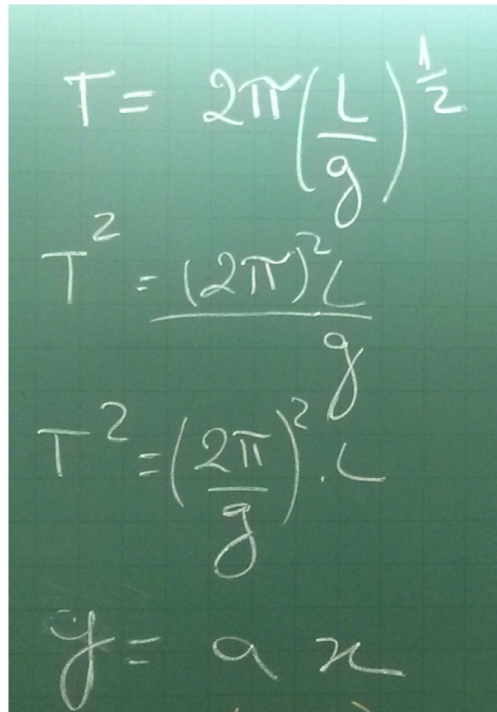 T = 2π(L/g)^½
T² = (2π)²L/g
T² = (2π/g)² . L
y = a x